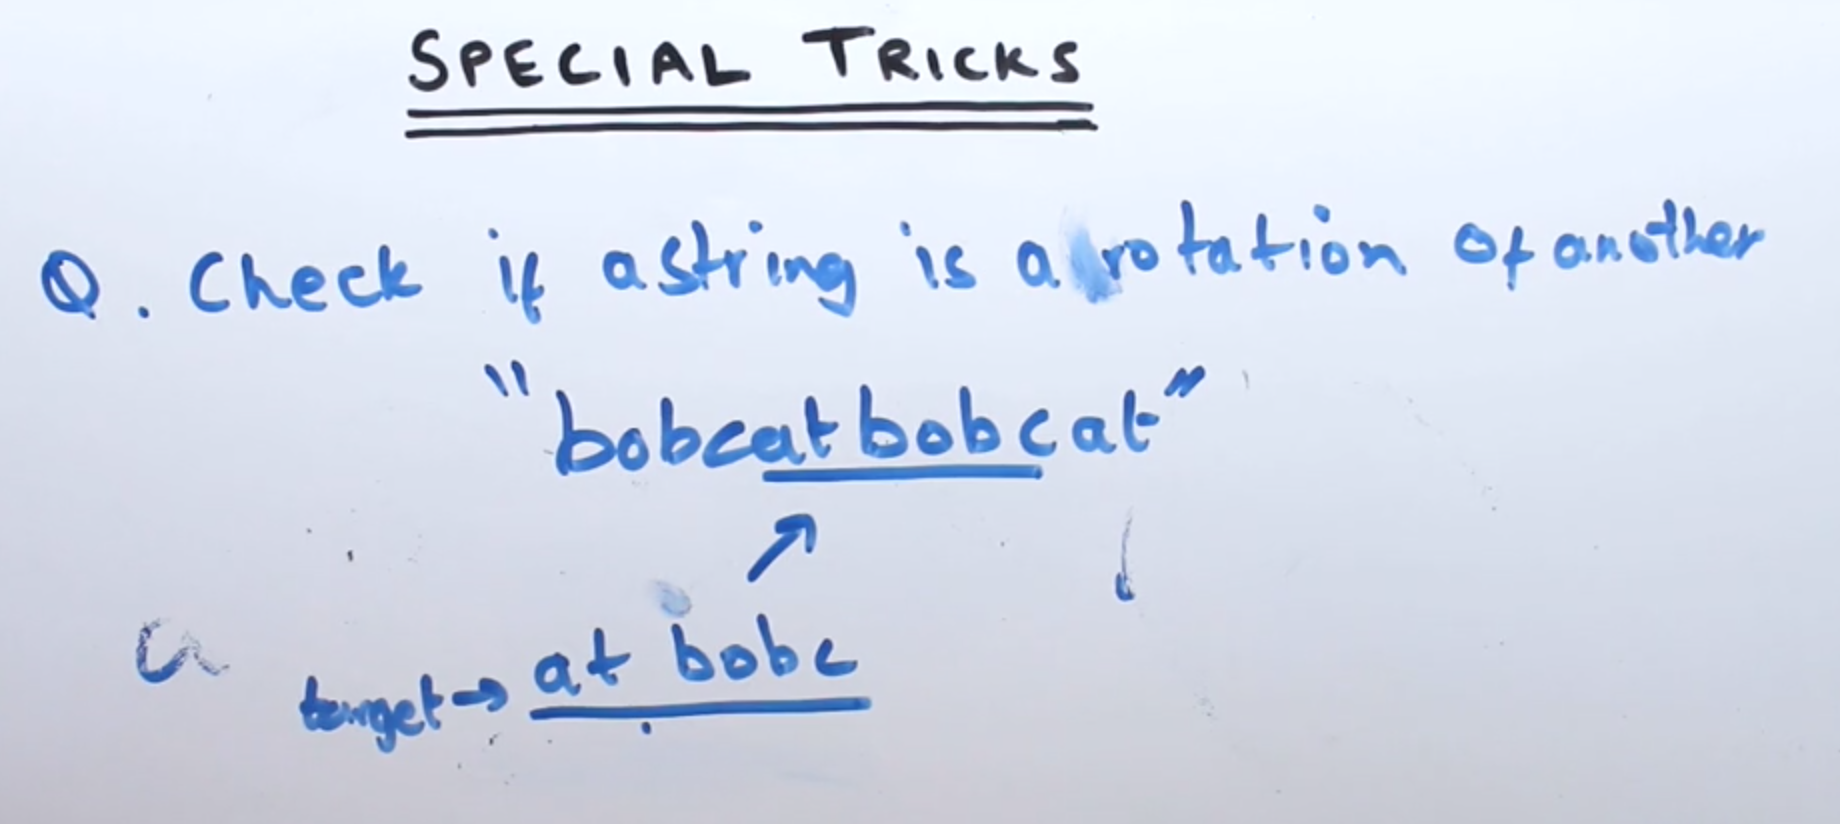 SPECIAL TRICKS
Q. Check if a string is a rotation of another
"bobcatbobcat"
target → at bobc